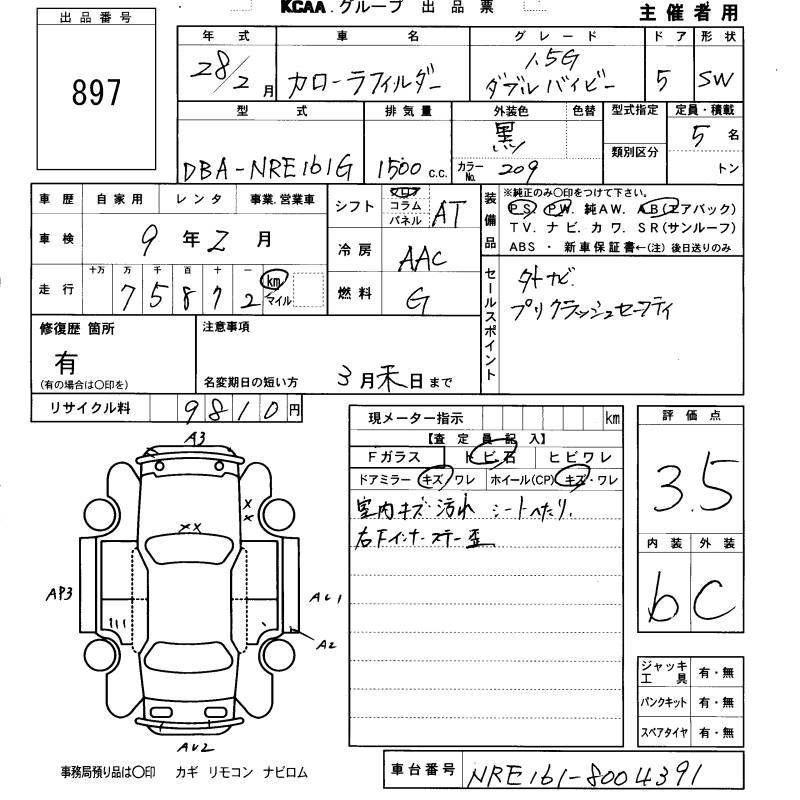 KCAA.グループ 出品票 主催者用
出品番号
897
年式 車名 グレード ドア 形状
28/2月 カローラフィルダー 1.5G ダブルバイビー 5 SW
型式 排気量 外装色 色替 型式指定 定員・積載
DBA-NRE161G 1500 c.c. 黒 カラーNo. 209 類別区分 5名
トン
車歴 自家用 レンタ 事業.営業車
シフト フロア コラム パネル AT
装備品 ※純正のみ○印をつけて下さい。
PS. PW. 純AW. AB(エアバック)
TV. ナビ. カワ. SR(サンルーフ)
ABS ・ 新車保証書←(注) 後日送りのみ
車検 9年2月
冷房 AAC
走行 十万 万 千 百 十 一
75872 km マイル
燃料 G
セールスポイント
外ナビ
プリクラッシュセーフティ
修復歴 箇所 注意事項
有
(有の場合は○印を) 名変期日の短い方 3月末日まで
リサイクル料 9810円
現メーター指示 km
【査定員記入】
Fガラス トビ石 ヒビワレ
ドアミラー キズ/ワレ ホイール(CP) キズ・ワレ
室内キズ汚れ シートヘたり.
右Fインナーステー歪
評価点
3.5
内装 外装
b C
A3
AP3
AU1
A2
AU2
ジャッキ工具 有・無
パンクキット 有・無
スペアタイヤ 有・無
事務局預り品は○印 カギ リモコン ナビロム
車台番号 NRE161-8004391